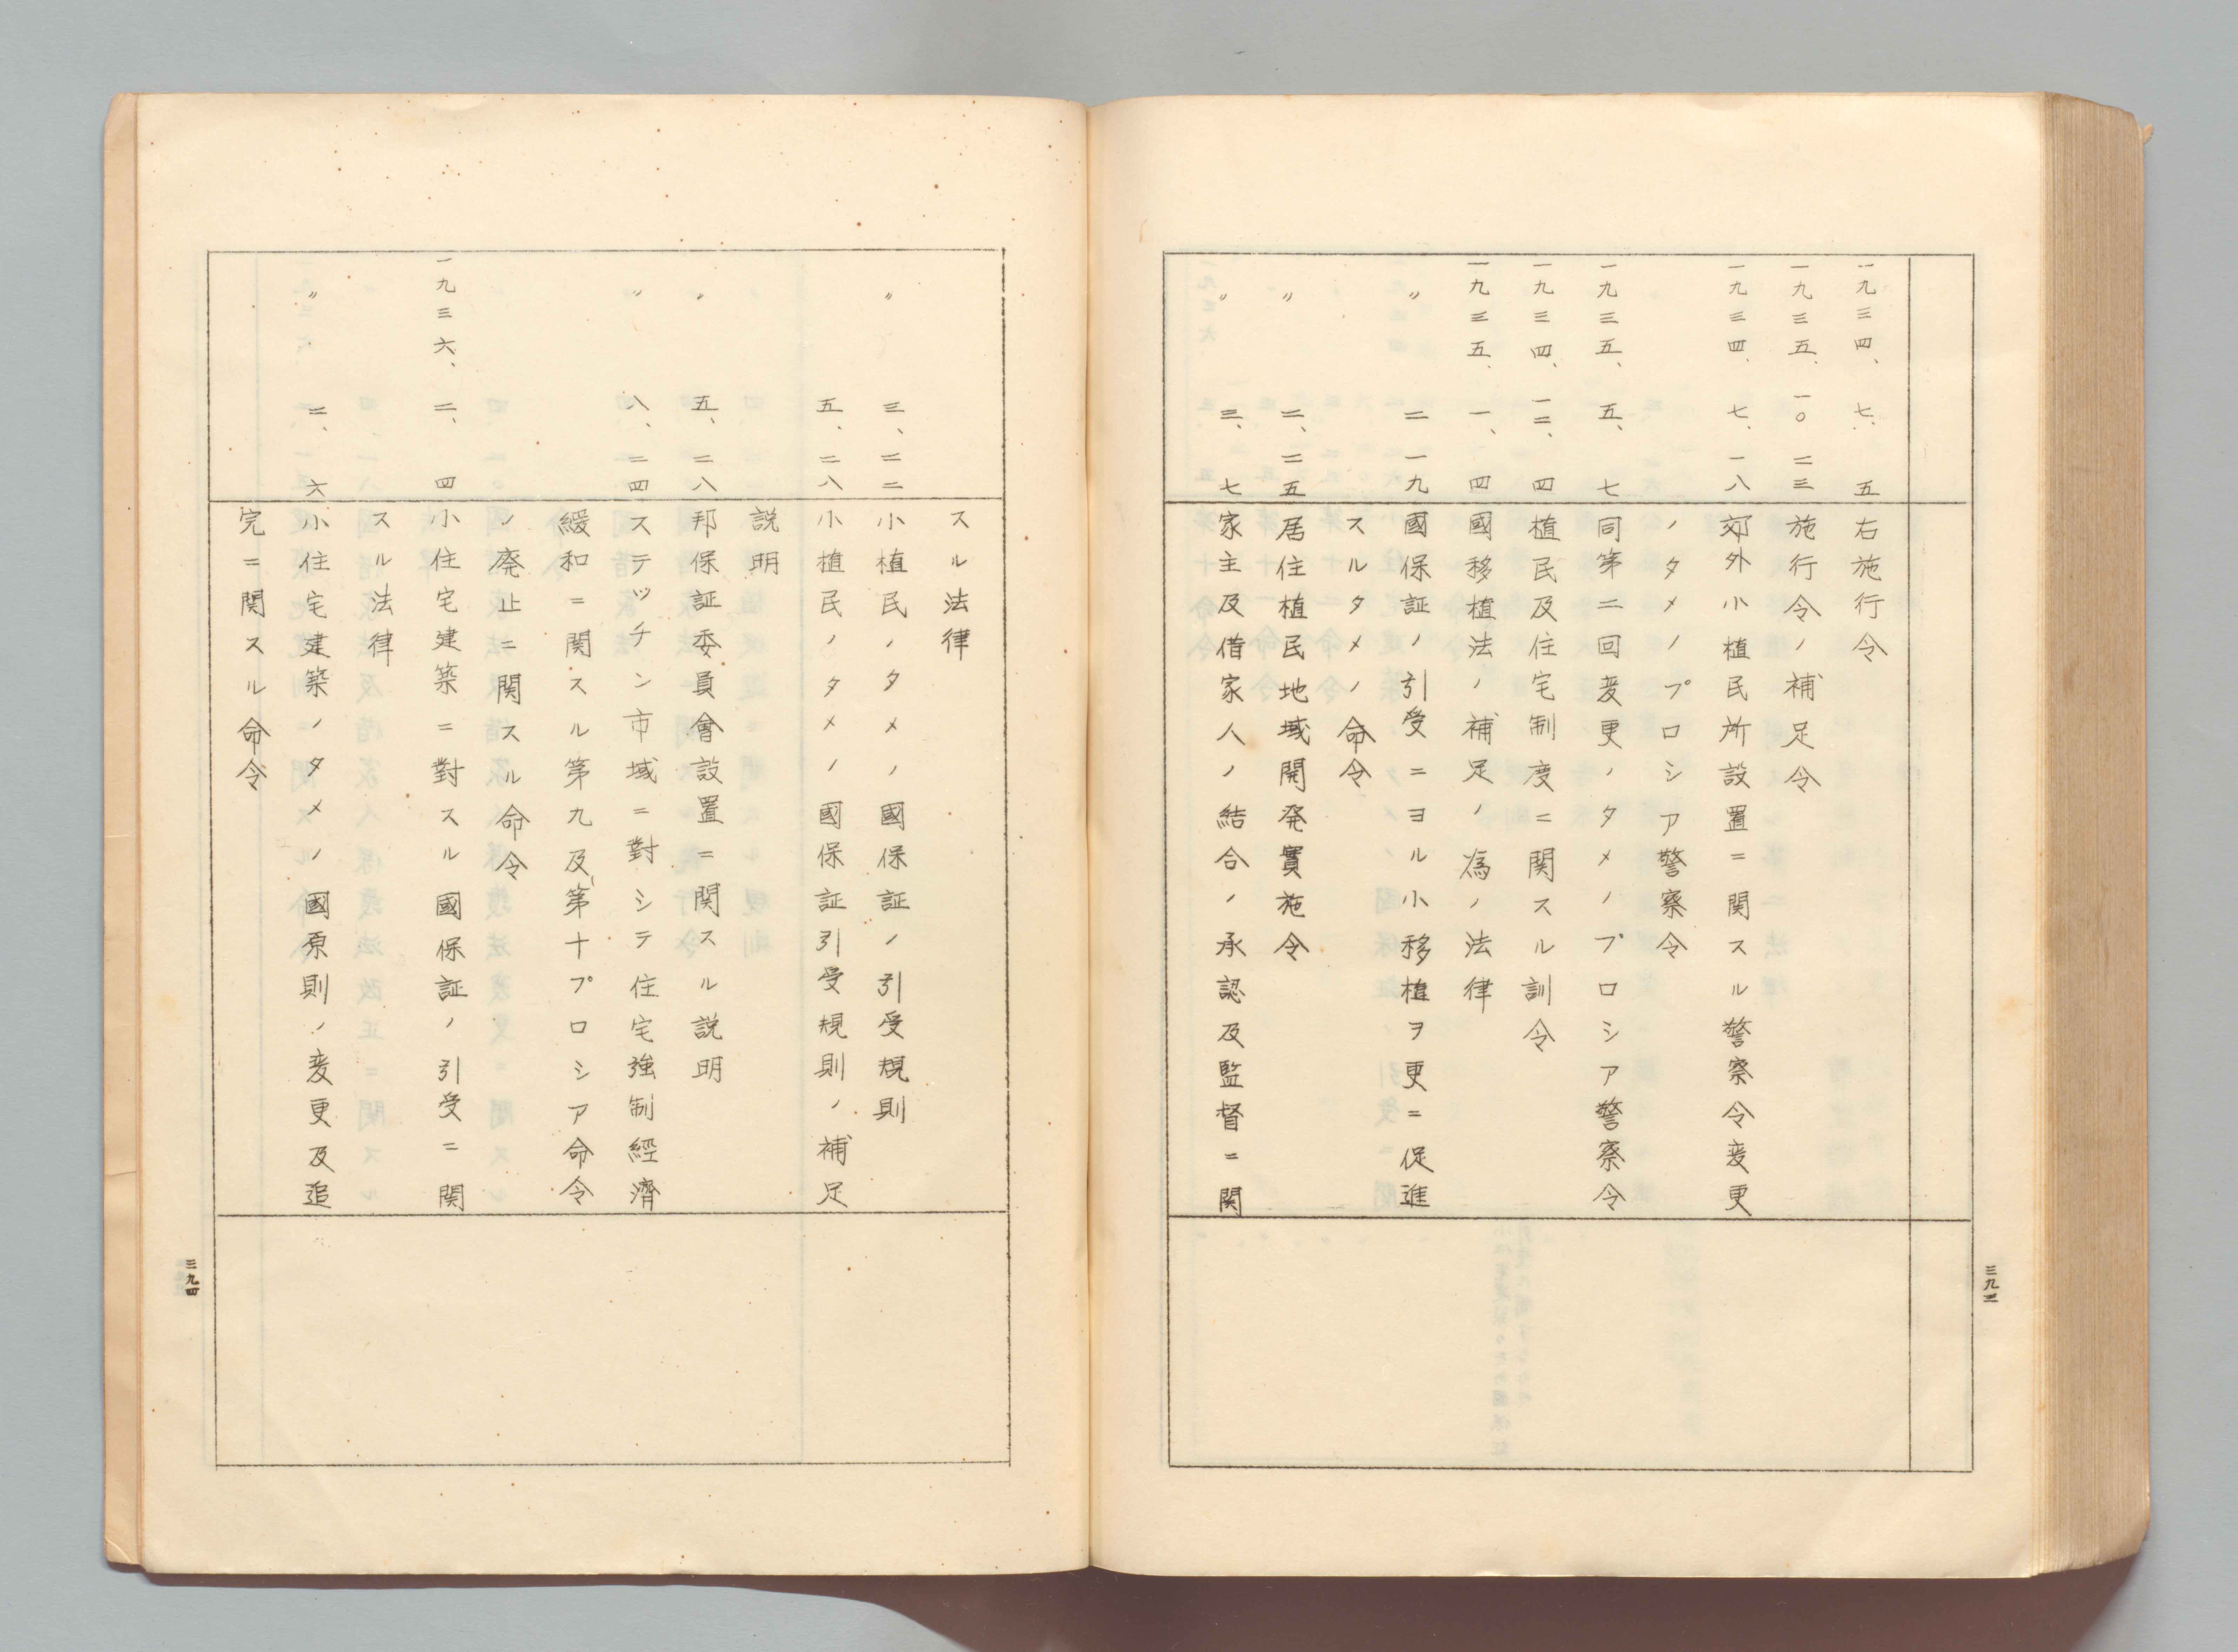 一九三四、七、五 右施行令
一九三五、一〇二三 施行令ノ補足令
一九三四、七、一八 郊外小植民所設置ニ関スル警察令変更
ノタメノプロシア警察令
一九三五、五、七 同第二回変更ノタメノプロシア警察令
一九三四、一二、四 植民及住宅制度ニ関スル訓令
一九三五、一、四 國移植法ノ補足ノ為ノ法律
〃 二一九 國保証ノ引受ニヨル小移植ヲ更ニ促進
スルタメノ命令
〃 二、二五 居住植民地域開発實施令
〃 三、七 家主及借家人ノ結合ノ承認及監督ニ関
三九三
スル法律
〃 三、二二 小植民ノタメノ國保証ノ引受規則
五、二八 小植民ノタメノ國保証引受規則ノ補足
説明
〃 五、二八 邦保証委員會設置ニ関スル説明
〃 八、二四 ステッチン市域ニ對シテ住宅強制經濟
緩和ニ関スル第九及第十プロシア命令
ノ廃止ニ関スル命令
一九三六、二、四 小住宅建築ニ對スル國保証ノ引受ニ関
スル法律
〃 二、六 小住宅建築ノタメノ國原則ノ変更及追
完ニ関スル命令
三九四